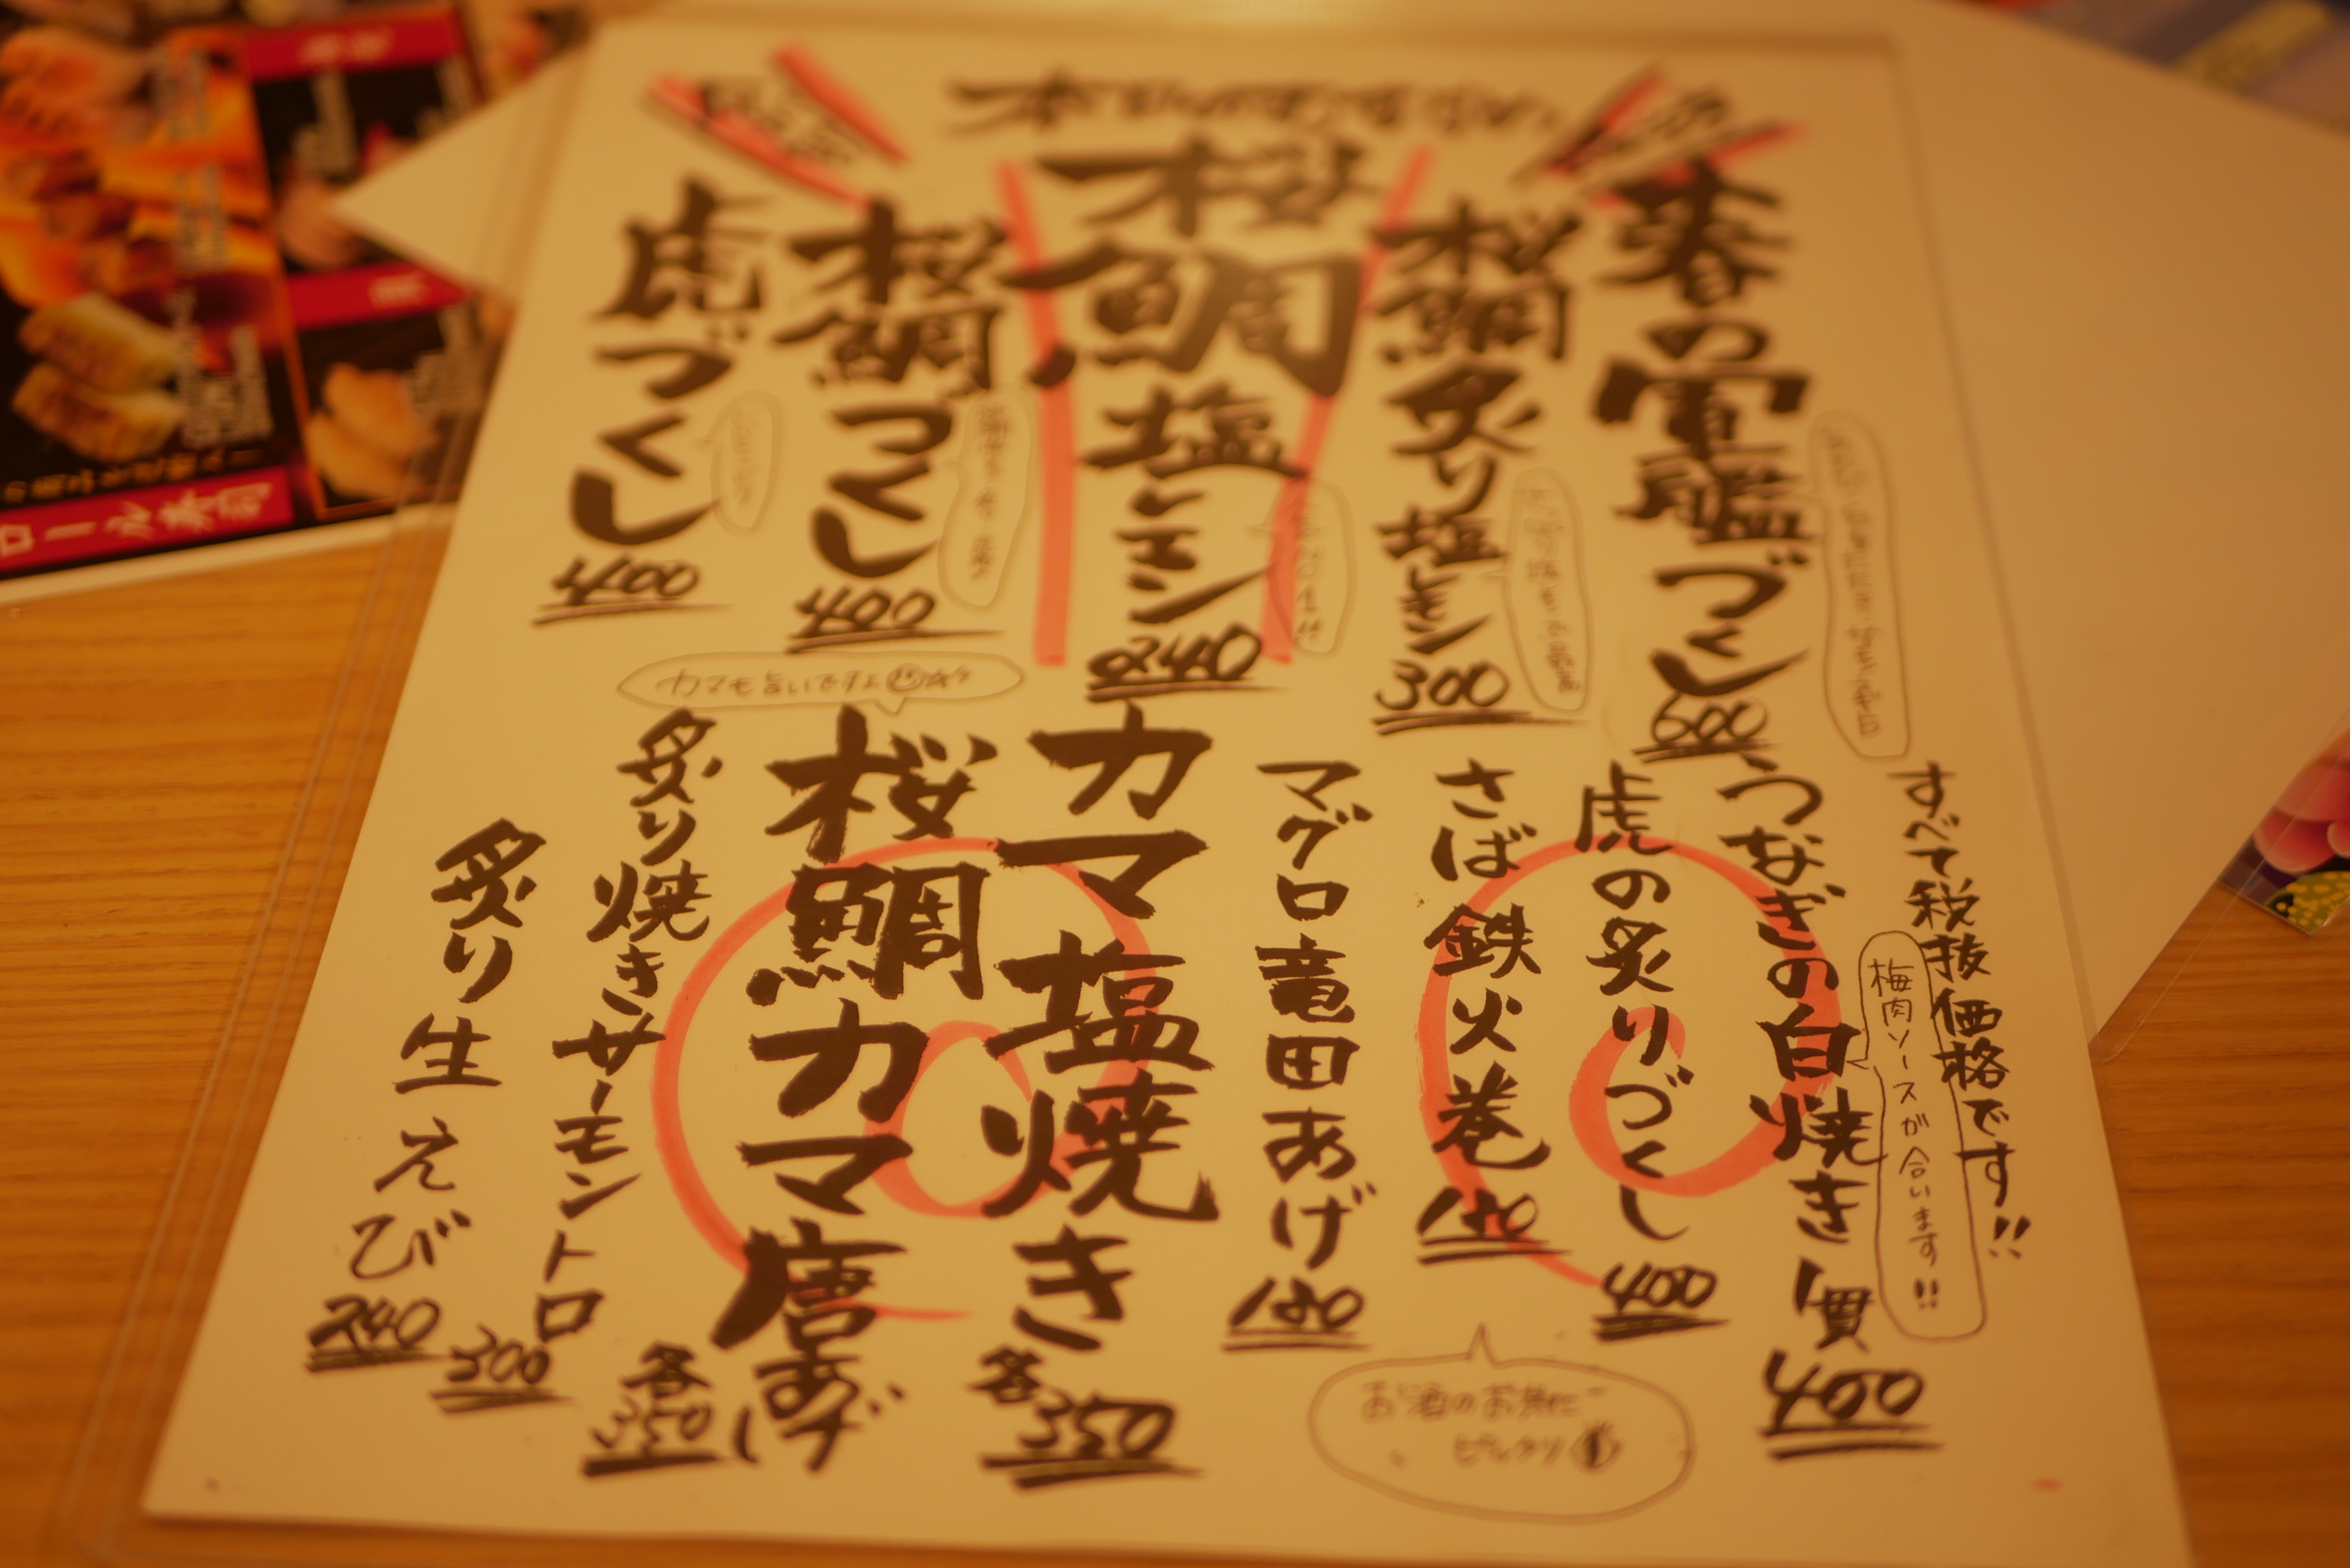 本日のおすすめ
春の
づくし
600
桜鯛炙り塩レモン
300
桜鯛塩レモン
240
桜鯛づくし
400
虎づくし
400
すべて税抜価格です!!
梅肉ソースが合います!!
つなぎの白焼き1貫
400
虎の炙りづくし
400
さば鉄火巻
マグロ竜田あげ
180
カマ塩焼き
各350
カマも旨いですよ
桜鯛カマ唐あげ
各350
炙り焼きサーモントロ
300
炙り生えび
240
お酒のお供に
ピッタリ
ロール寿司